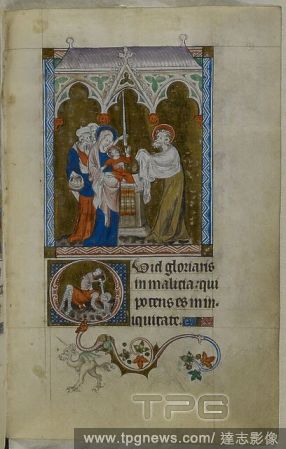 Quid gloriaris
in malicia: qui
potens es in in-
iquitate.
TPG
www.tpgnews.com/ 達志影像